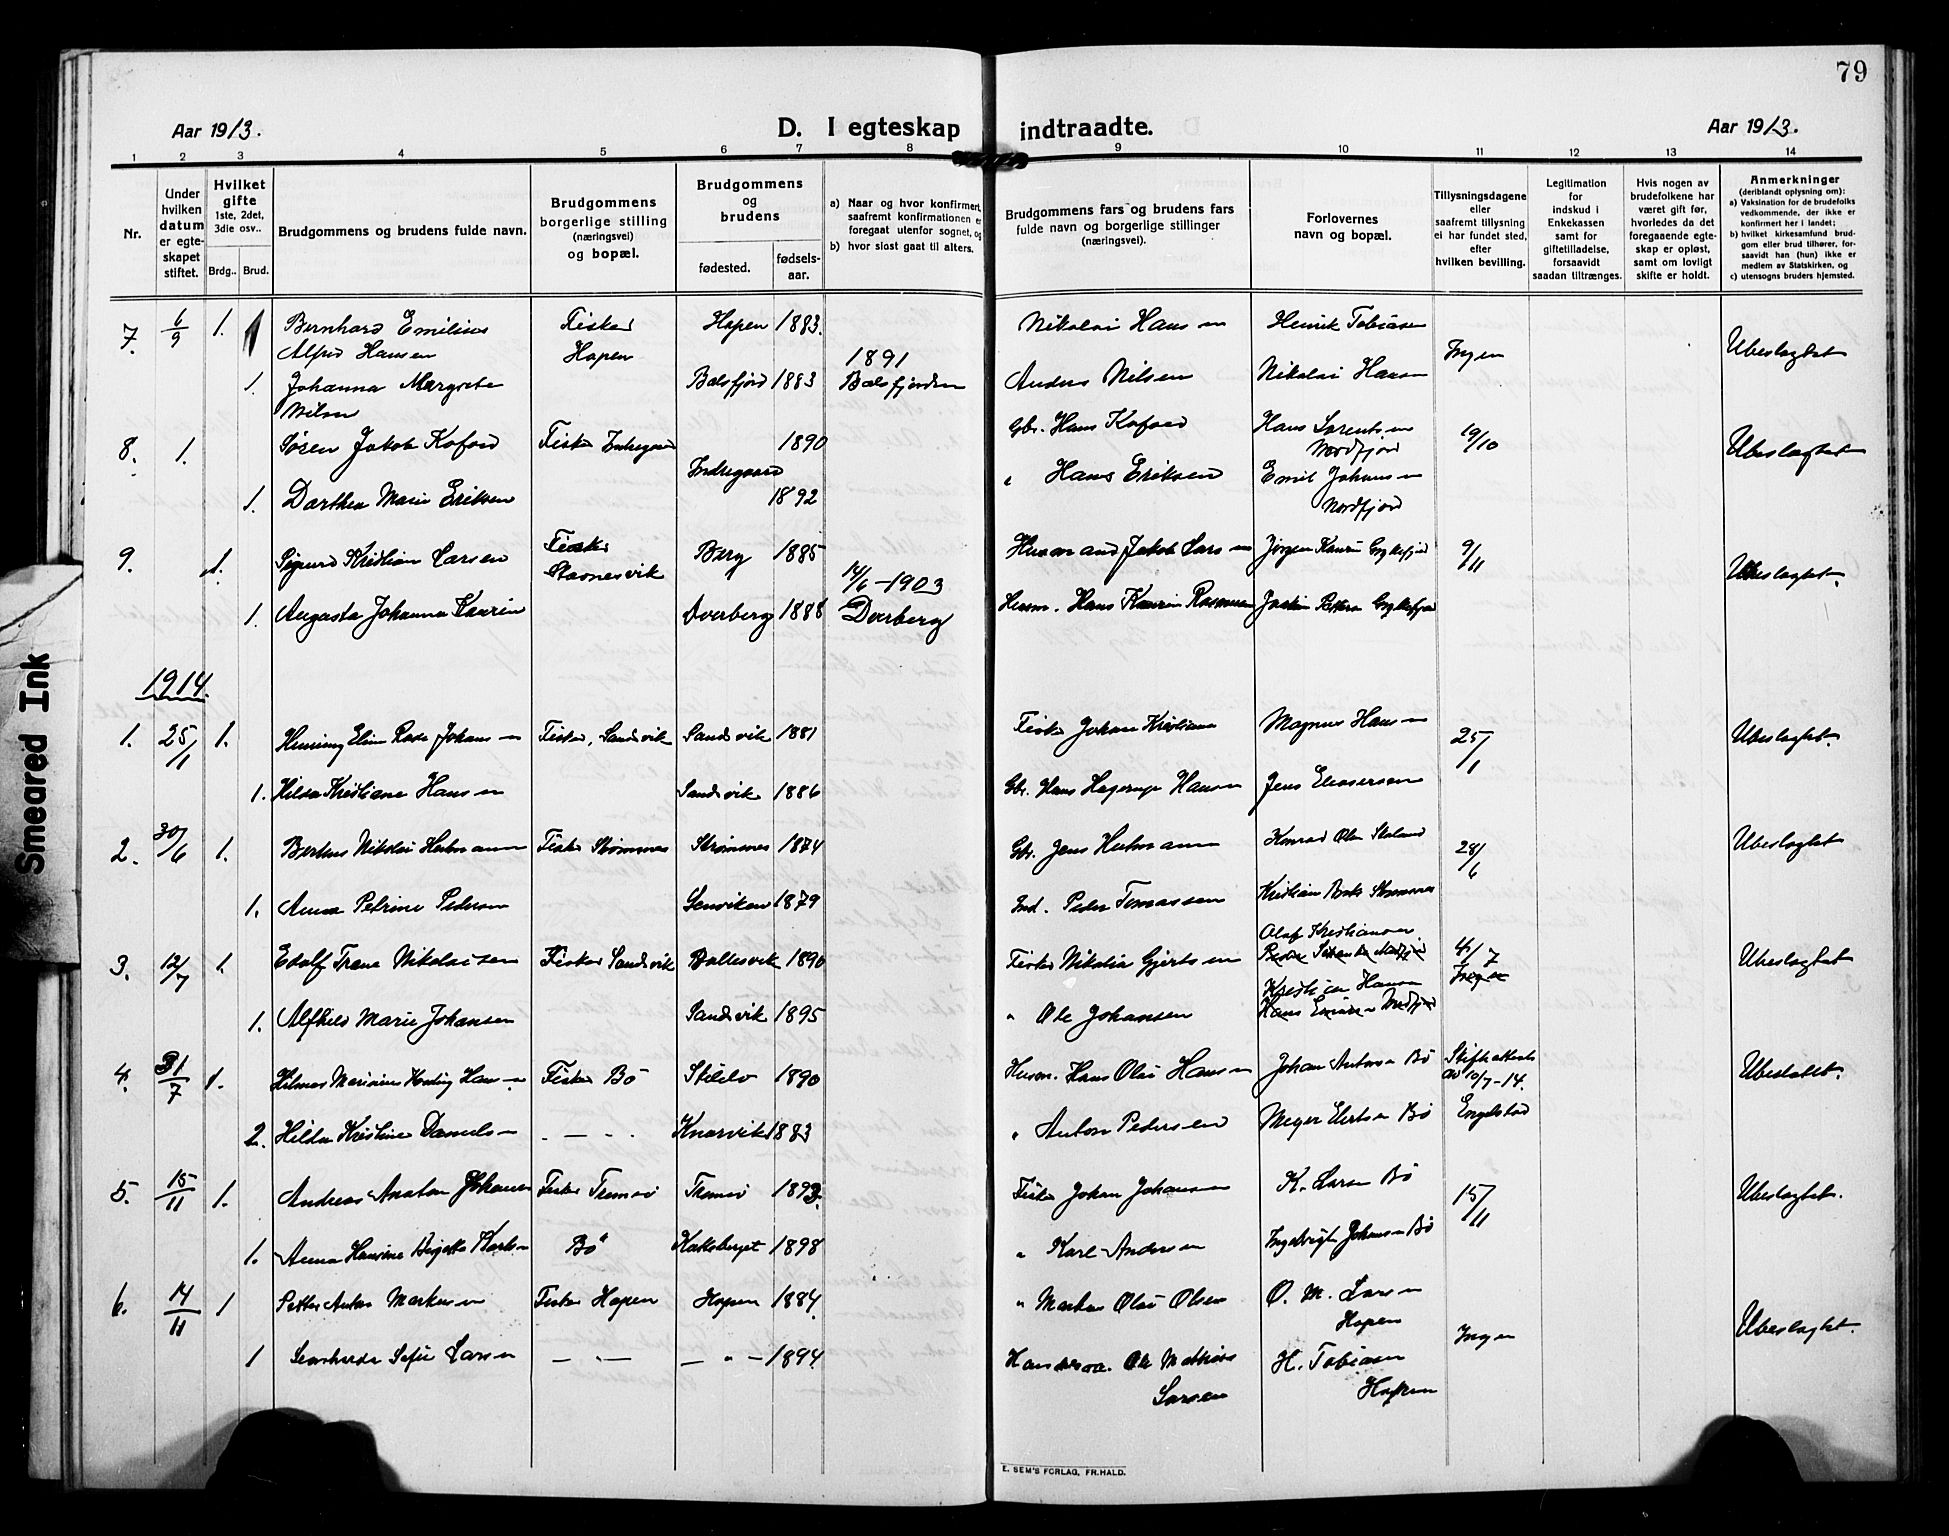 79
Aar 1913.
D. I egteskap indtraadte.
Aar 1913.
1 2 3 4 5 6 7 8 9 10 11 12 13 14
Nr.
Under hvilken datum er egteskapet stiftet.
Hvilket gifte 1ste, 2det, 3die osv..
Brdg.. Brud.
Brudgommens og brudens fulde navn.
Brudgommens borgerlige stilling (næringsvei) og bopæl.
Brudgommens og brudens
fødested. fødsels-aar.
a) Naar og hvor konfirmert, saafremt konfirmationen er foregaat utenfor sognet, og
b) hvor sidst gaat til alters.
Brudgommens fars og brudens fars fulde navn og borgerlige stillinger (næringsvei).
Forlovernes navn og bopæl.
Tillysningsdagene eller saafremt tillysning ei har fundet sted, efter hvilken bevilling.
Legitimation for indskud i Enkekassen samt for giftetilladelse, forsaavidt saadan tiltrænges.
Hvis nogen av brudefolkene har været gift før, hvorledes da det foregaaende egteskap er opløst, samt om lovligt skifte er holdt.
Anmerkninger (deriblandt oplysning om):
a) Vaksination for de brudefolks vedkommende, der ikke er konfirmert her i landet;
b) hvilket kirkesamfund brudgom eller brud tilhører, forsaavidt han (hun) ikke er medlem av Statskirken, og
c) utensogns bruders hjemsted.
7. 6/9 1. 1 Bernhard Emilius Fisker Hopen 1883. Nikolai Hansen Henrik Tobiasen Ingen Ubeslagtet
Alfred Hansen Hopen 1891
1. Johanna Margrete Balsfjord 1883 Balsfjorden Anders Nilsen Nikolai Hansen
Nilsen
8. 1. Søren Jakob Kofoed Fisker Indregaard 1890 Gbr. Hans Kofoed Hans Lorentsen 19/10 Ubeslagtet
Nordfjord
Indregaard " Hans Eriksen Emil Johansen
1. Dorthea Marie Eriksen 1892 Nordfjord
9. 1. Sigurd Kristian Larsen Fisker Berg 1885 Husmand Jakob Larsen Jørgen Kaurin Grykefjord 9/11 Ubeslagtet.
Stavnesvik 14/6-1903
1. Augusta Johanna Kaurin Dverberg 1888 Dverberg Husm. Hans Kaurin Rasmussen
1914.
1. 25/1 1. Henning Elias Johansen Fisker, Sandvik Sandsvik 1881 Fisker Johan Kristiansen Magnus Hansen 25/1 Ubeslagtet.
1. Hilda Kristiane Hansen Sandsvik 1886 Gbr. Hans Hagerup Hansen Jens Eleasersen
2. 30/6 1. Bertus Nikolai Hartmann Fisker Strømmes Strømmes 1874 Gbr. Jens Hartmann Konrad Olsen 28/6 Ubeslagtet
1. Anna Petrine Pedersen 1879 Ind. Peder Tomassen Kristian Strømmes
Olaf Kristiansen
3. 12/7 1. Edolf Trane Nikolaisen Fisker Sandsvik Ballesvik 1890 Fisker Nikolai Gjertsen 4/7 Ubeslagtet
Kristian Hansen Ingen
1. Alfhild Marie Johansen Sandsvik 1895 " Ole Johansen
4. 31/7 1. Hilmar Marinius Hansen Fisker Bø 1890 Husm. Hans Olai Hansen Johan Antonsen Bø Stiftsattest Ubeslagtet.
av 10/7-14.
2. Hilda Kristine Danielsen - - - Knarvik 1883 " Anton Pedersen Meyer Eilertsen Bø Engelstad
5. 15/11 1. Andreas Anatan Johansen Fisker Tromsø Tromsø 1893. Fisker Johan Johansen K. Larsen Bø 15/11 Ubeslagtet.
1. Anna Hansine Birgitte Karlsen Bø Kakteberget 1898 " Karl Andersen Ingebrigt Johansen Bø
6. 14/11 1 Petter Anton Markussen Fisker Hopen Hopen 1884. " Markus Olai Olsen O. M. Larsen
Hopen
Ingen Ubeslagtet.
1 Sofie Larsen - " - - " - 1894 Ole Mathias H. Tobiasen
Larsen Hopen
E. SEM'S FORLAG, FR.HALD.
Smeared Ink